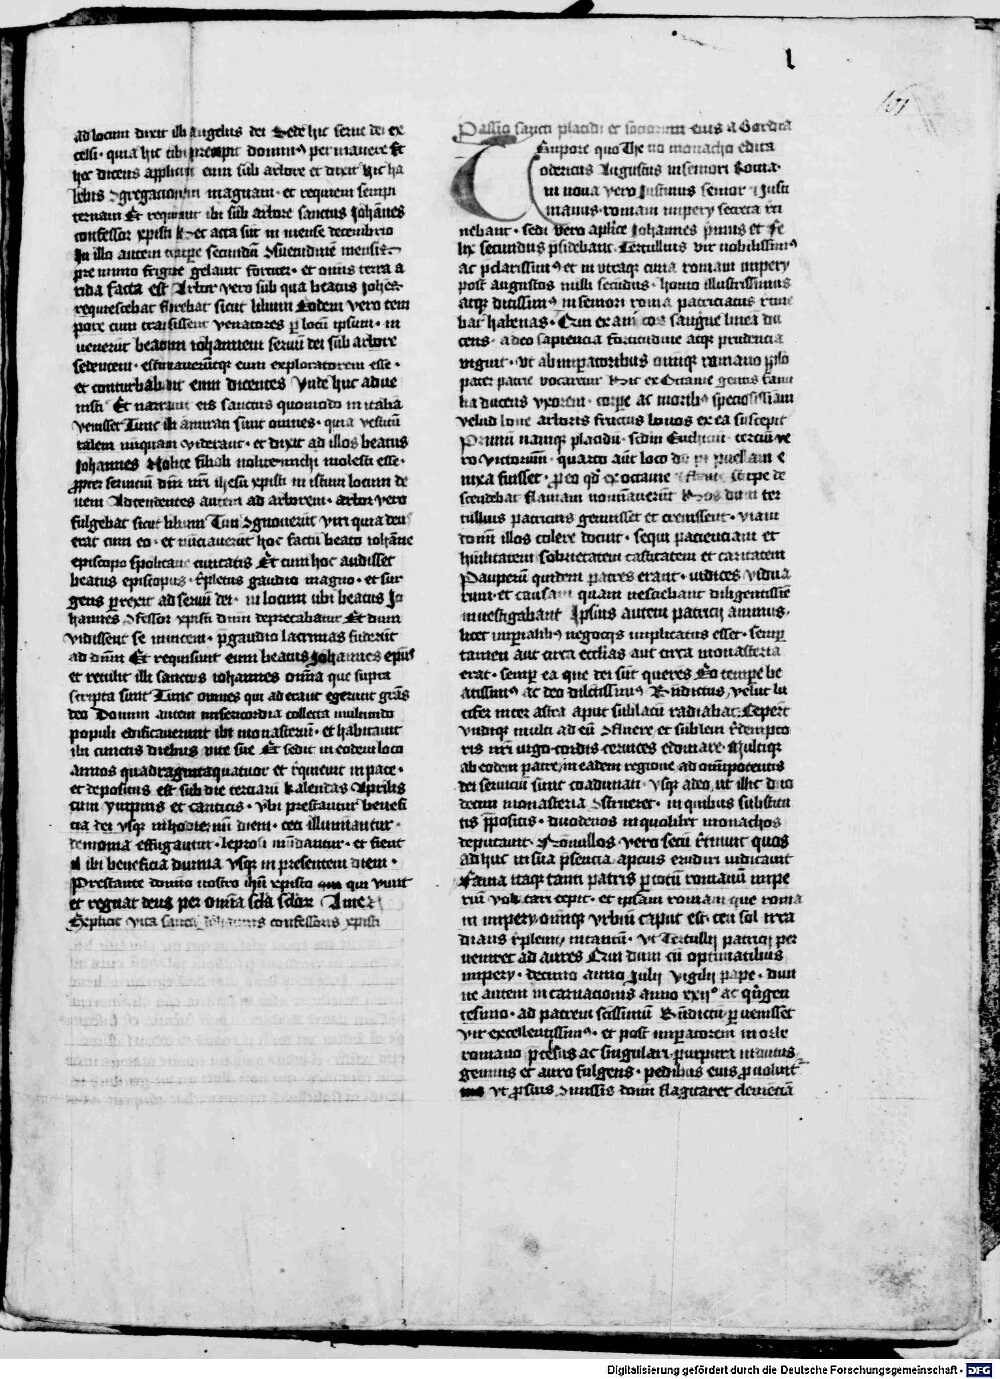 ad locum dixit illi angelus dei Sede hic serue dei ex
celsi · quia hic tibi precepit dominus permanere Et
hec dicens applicuit eum sub arbore et dixit hic ha
bebis ↄgregacionem magnam · et requiem sempi
ternam Et requieuit ibi sub arbore sanctus Johannes
confessor xpisti Hec et acta sūt in mense decembrio
In illo autem tempore secundum ↄsuetudinem mensis
pre nimio frigore gelauit fortiter · et omnis terra a
rida facta est Arbor vero sub qua beatus Johēs
requiescebat florebat sicut lilium Eodem vero tem
pore cum transissent venatores per locū ipsum · in
uenerūt beatum iohannem seruū dei sub arbore
sedentem · estimauerūtqꝫ eum exploratorem esse ·
et conturbabant eum dicentes Unde huc adue
nisti Et narrauit eis sanctus quomodo in italia
venisset Tunc illi admirati sunt omnes · quia vestitū
talem nūquam viderant · et dixit ad illos beatus
Johannes Nolite filioli nolite michi molesti esse ·
propter seruicium dn̄i nr̄i ihesū xpisti in istum locum de
ueni Adtendentes autem ad arborem · arbor vero
fulgebat sicut lilium Tunc ↄgnouerūt viri quia deus
erat cum eo · et nūciauerūt hoc factū beato iohāne
episcopo spolitane ciuitatis Et cum hoc audisset
beatus episcopus · r̄pletus gaudio magno · et sur
gens perrexit ad seruū dei · in locum ubi beatus Jo
hannes ↄfessor xpisti dn̄m deprecabatur Et dum
vidissent se inuicem · p̄ gaudio lacrimas fuderūt
ad dn̄m Et requisiuit eum beatus Johannes ep̄us
et retulit illi sanctus iohannes om̄ia que supra
scripta sunt Tunc omnes qui aderant egerunt grās
deo Domini autem misericordia collecta multitudo
populi edificauerunt ibi monasteriū · et habitauit
ibi cunctis diebus vite sue Et sedit in eodem loco
annos quadragintaquatuor et r̄quieuit in pace ·
et depositus est sub die tercium kalendas Aprilis
cum ympnis et canticis · vbi prestantur benefi
cia dei vsqꝫ in hodiernū diem · ceci illuminantur ·
demonia effugantur · leprosi mūdantur · et fient
ibi beneficia diuina vsqꝫ in presentem diem ·
Prestante domino nostro ihū xpisto qui viuit
et regnat deus per om̄ia sc̄la sclor̄ Amen
Explicit vita sancti Johannis confessoris xpisti
l
101
Passio sancti placidi et sociorum eius a Gordia
no monacho edita
Tempore quo The
odericus Augustus in seniori Roma ·
in noua vero Justinus senior ⁊ Justi
nianus · romani imperij sceptra reti
nebant · sedi vero ap̄lice Johannes primus et Fe
lix secundus p̄sidebant Tertullus vir nobilissimꝰ
ac p̄clarissimꝰ et in vtraqꝫ curia romani imperij
post augustos nulli secūdus · homo illustrissimus
atqꝫ ditissimꝰ in seniori roma patriciatus rime
bat habenas ·
cens · adeo sapiencia fortitudine atqꝫ prudencia
viguit · vt ab imperatoribus omīqꝫ romano populo
pater patrie vocaretur Hic ex Octauie gentis fami
lia ducens vxorem · corpore ac moribꝫ speciosissimam
velud bone arboris fructus bonos ex ea suscepit
Primū namqꝫ placidū · scd̄m Euthiciū · terciū ve
ro victorinū · quarto aūt loco dū puellam e
nixa fuisset · pro eo qd̄ ex octauie stirpe de
scendebat flauiam nominauerūt Hos dum ter
tullus patricius genuisset et erudissent · viam
domini illos colere docuit · sequi pacienciam et
humilitatem sobrietatem castitatem et caritatem
Pauperū quidem patres erant · iudices vidua
rum · et causam quam nesciebant diligentissime
inuestigabant Ipsius autem patricij animus ·
licet imperialibꝫ negocijs implicatus esset · semper
tamen aut circa eccl̄ias aut circa monasteria
erat · semper ea que dei sūt queres Eo tempore be
atissimꝰ ac deo dilectissimꝰ Benedictus velut lu
cifer inter astra aput sublacū radiabat Ceperūt
vndiqꝫ multi ad eū ↄfluere et sublimi redempto
ris nr̄i iugo cordis ceruices edomare · Multiqꝫ
ab eodem patre in eadem regione ad omnipotentis
dei seruiciū sunt coadunati · vsqꝫ adeo vt illic duo
decim monasteria ↄstrueret · in quibus substitu
tis prepositis · duodenos in quolibet monachos
deputauit · Nonnullos vero secū retinuit quos
adhuc in sua p̄sencia apcius erudiri iudicauit
Fama itaqꝫ tanti patris per totū romanū impe
rium volitari cepit · et ipsam romam que roma
ni imperij omīqꝫ vrbiū caput est · ceu sol irra
dians repleuit intantū · vt Tertullij patricij per
ueniret ad aures Cum dum cū optimatibus
imperij · decimo anno Julij Vigilij pape · diui
ne autem incarnacionis anno xxijº ac quingen
tesimo · ad patrem sc̄issimū Benedictū peruenisset
vir excellentissimꝰ · et post imperatorem in orbe
romano potens ac singulari purpura indutus
gemmis et auro fulgens · pedibus eius prouoluit
vt prosus ↄmissis domini flagitaret clemēciā
Digitalisierung gefördert durch die Deutsche Forschungsgemeinschaft - DFG